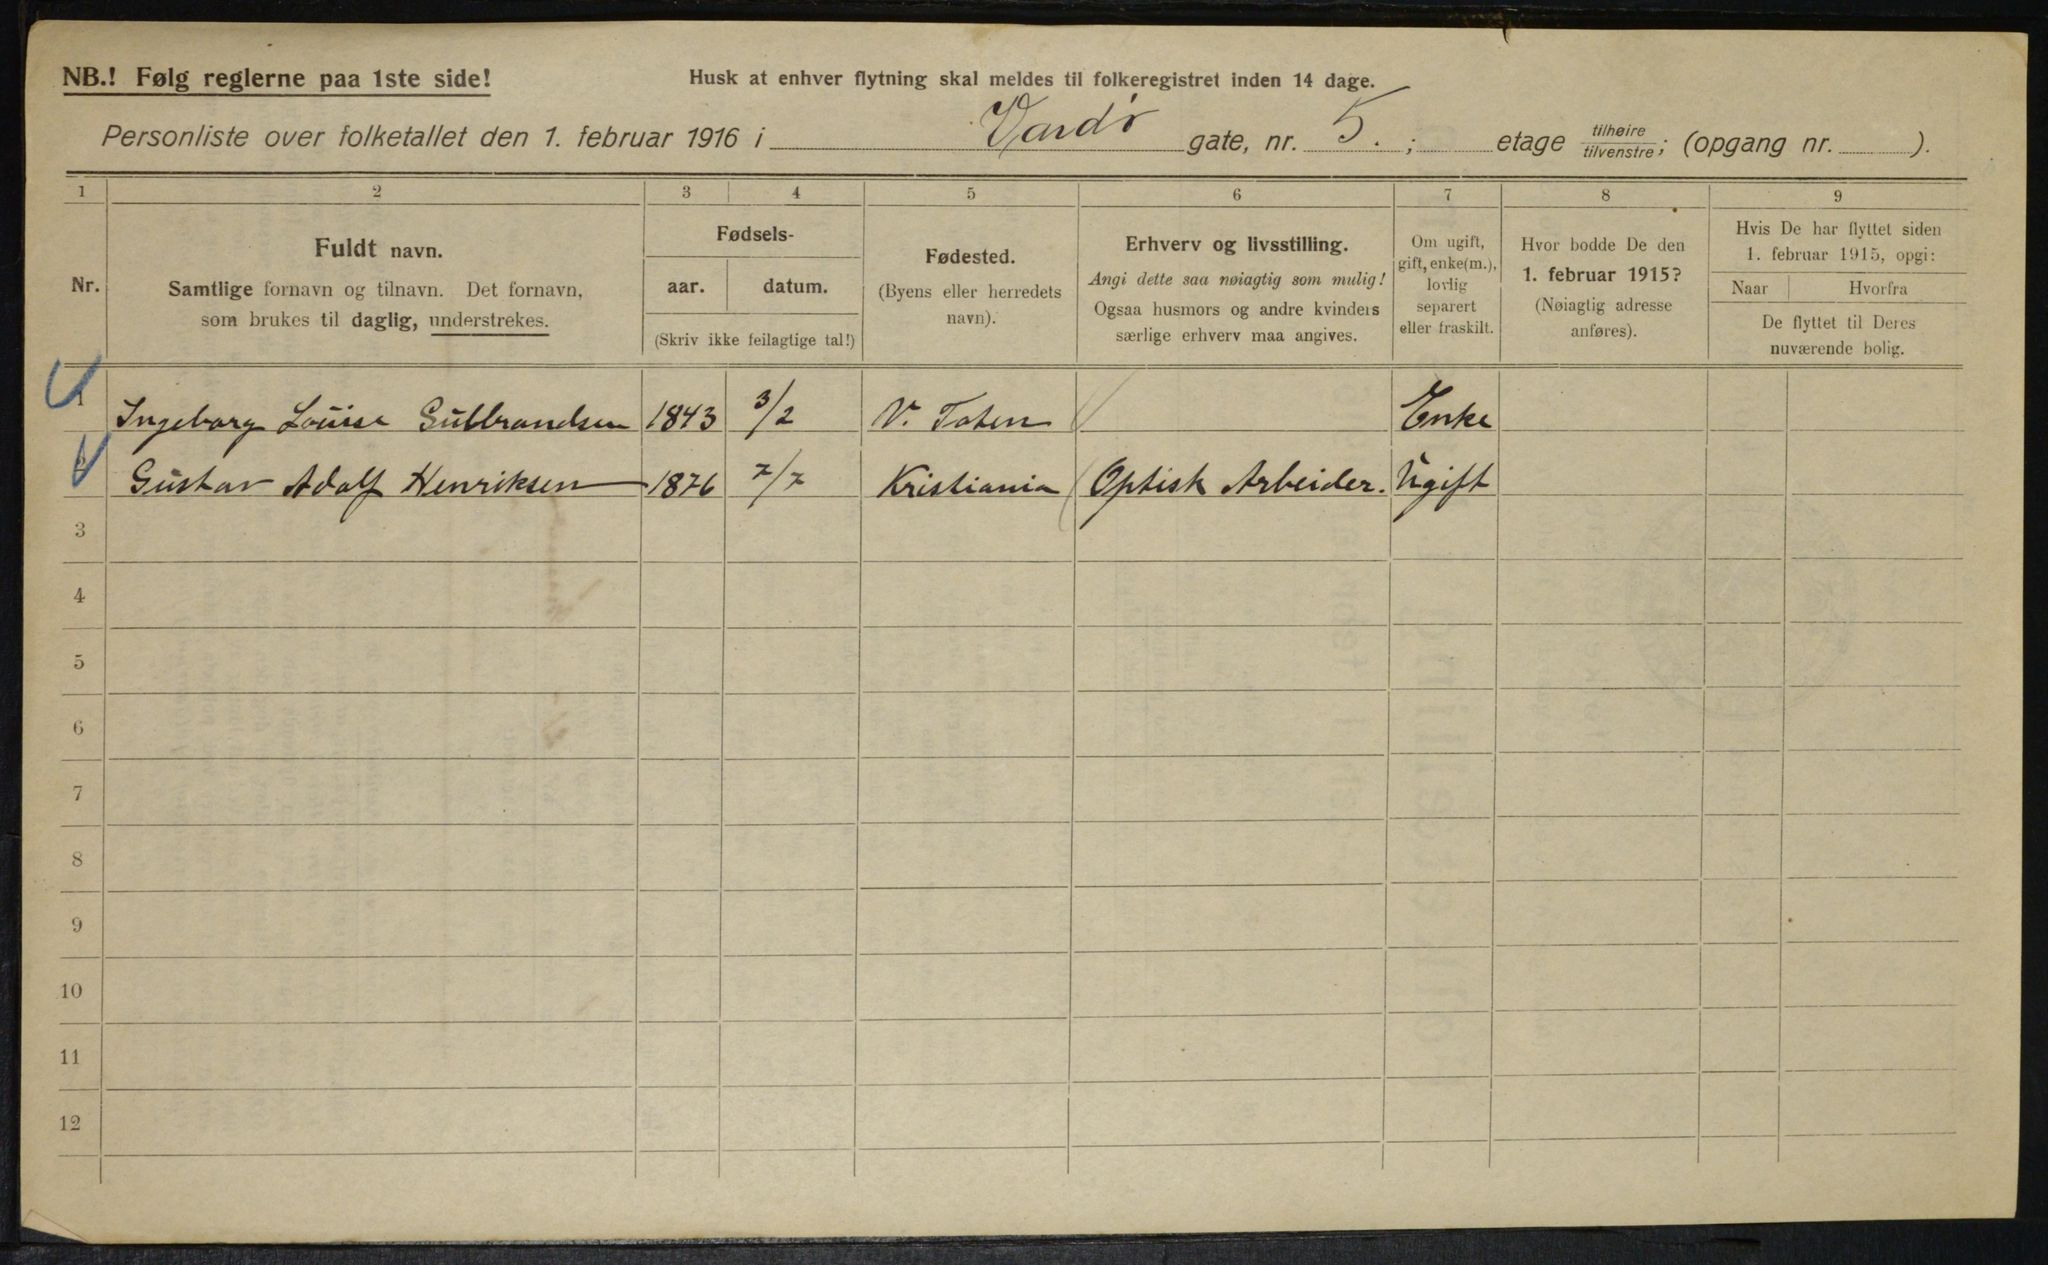 NB.! Følg reglerne paa 1ste side!
Husk at enhver flytning skal meldes til folkeregistret inden 14 dage.
Personliste over folketallet den 1. februar 1916 i Vardø gate, nr. 5. ; etage tilhøire tilvenstre; (opgang nr. ).
1 2 3 4 5 6 7 8 9
Nr.
Fuldt navn.
Samtlige fornavn og tilnavn. Det fornavn,
som brukes til daglig, understrekes.
Fødsels-
aar. datum.
(Skriv ikke feilagtige tal!)
Fødested.
(Byens eller herredets
navn).
Erhverv og livsstilling.
Angi dette saa nøiagtig som mulig!
Ogsaa husmors og andre kvinders
særlige erhverv maa angives.
Om ugift,
gift, enke(m.),
lovlig
separert
eller fraskilt.
Hvor bodde De den
1. februar 1915?
(Nøiagtig adresse
anføres).
Hvis De har flyttet siden
1. februar 1915, opgi:
Naar Hvorfra
De flyttet til Deres
nuværende bolig.
1 Ingeborg Louise Gulbrandsen 1843 3/2 V. Toten Enke
2 Gustav Adolf Henriksen 1876 7/7 Kristiania Optisk Arbeider. Ugift
3
4
5
6
7
8
9
10
11
12